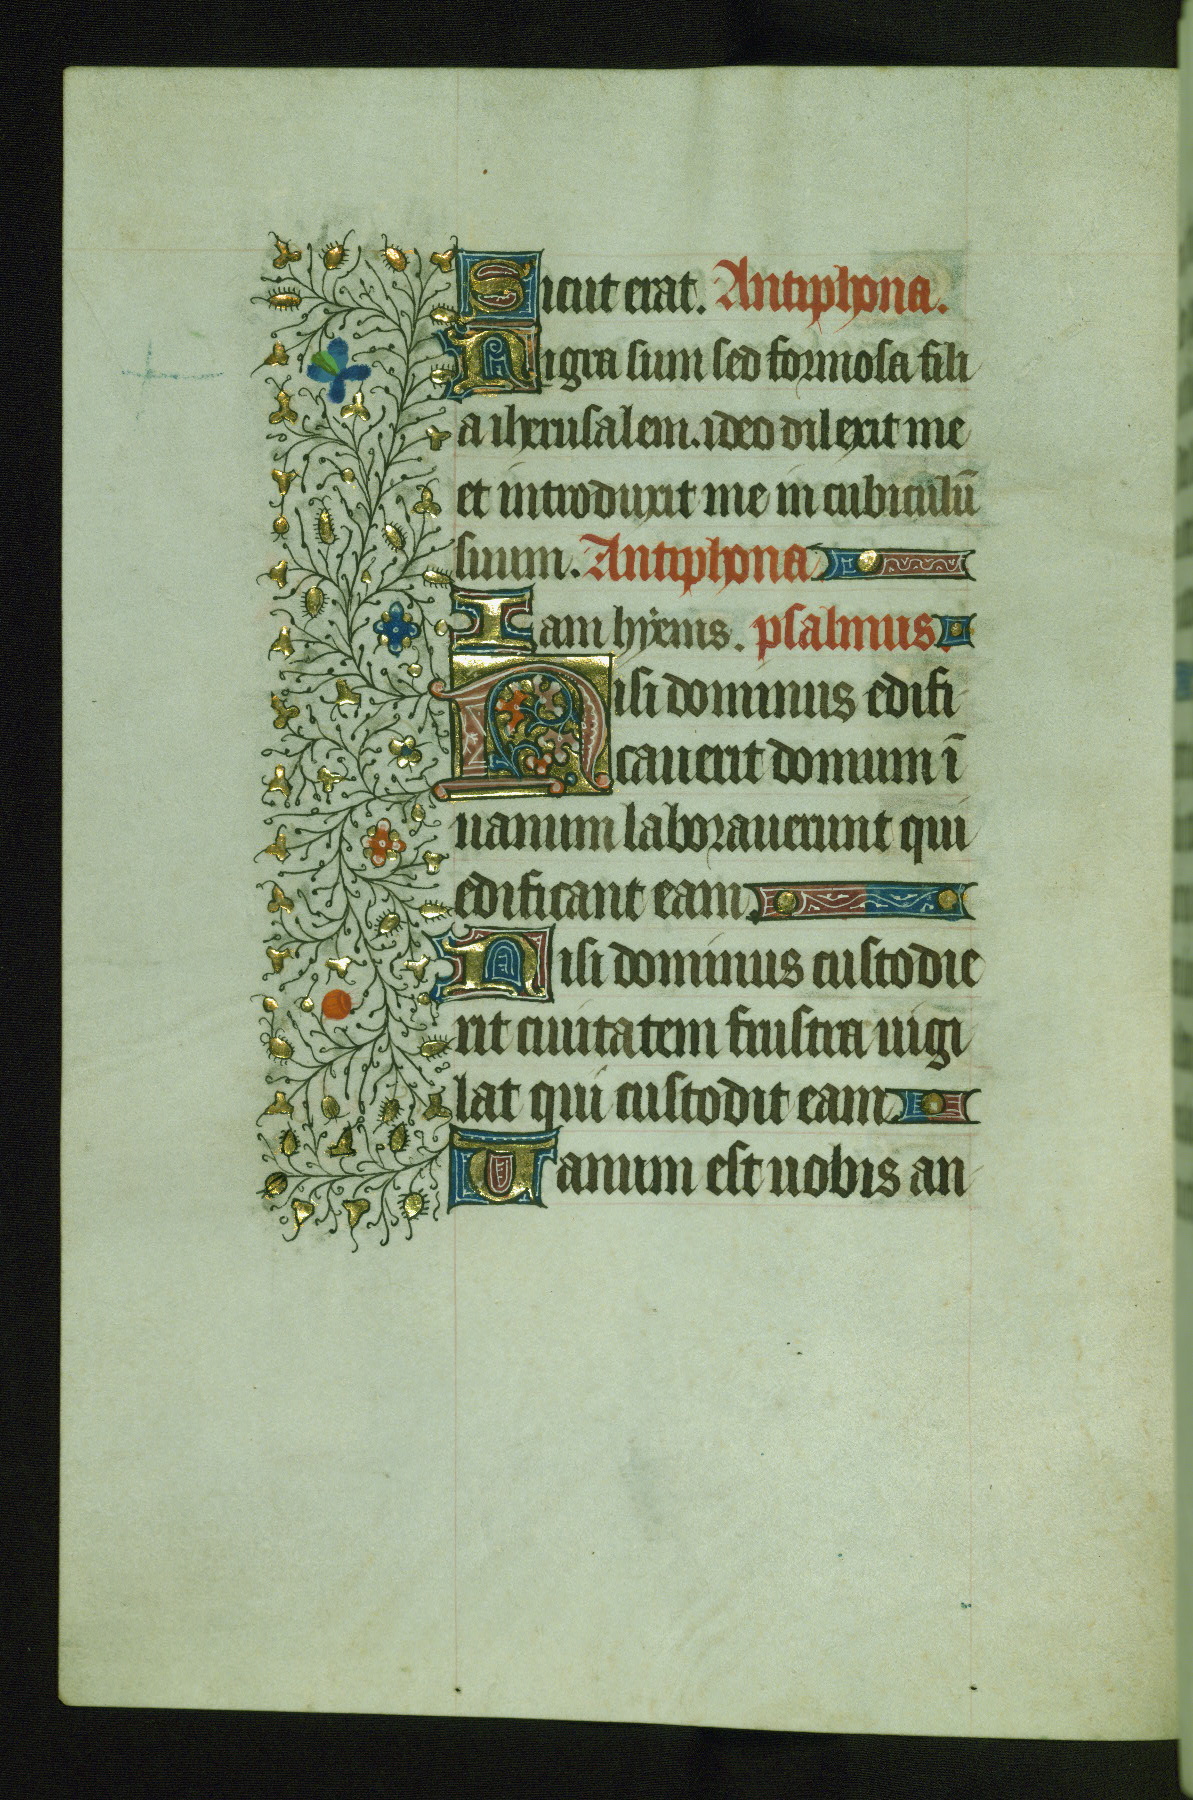 Sicut erat. Antiphona.
Nigra sum sed formosa fili
a iherusalem. ideo dilexit me
et introduxit me in cubiculū
suum. Antiphona
Iam hyems. psalmus.
Nisi dominus edifi
cauerit domum ī
uanum laborauerunt qui
edificant eam.
Nisi dominus custodie
rit ciuitatem frustra uigi
lat qui custodit eam
Uanum est uobis an